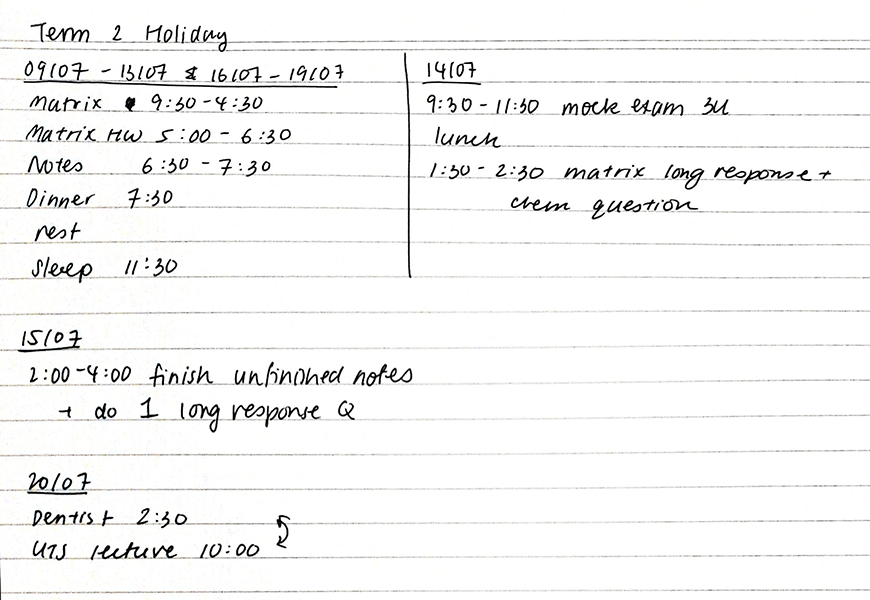 Term 2 Holiday
09/07 - 13/07 & 16/07 - 19/07
Matrix 9:30 - 4:30
Matrix HW 5:00 - 6:30
Notes 6:30 - 7:30
Dinner 7:30
rest
sleep 11:30
14/07
9:30 - 11:30 mock exam 3U
lunch
1:30 - 2:30 matrix long response +
chem question
15/07
2:00 - 4:00 finish unfinished notes
+ do 1 long response Q
20/07
Dentist 2:30
UTS lecture 10:00